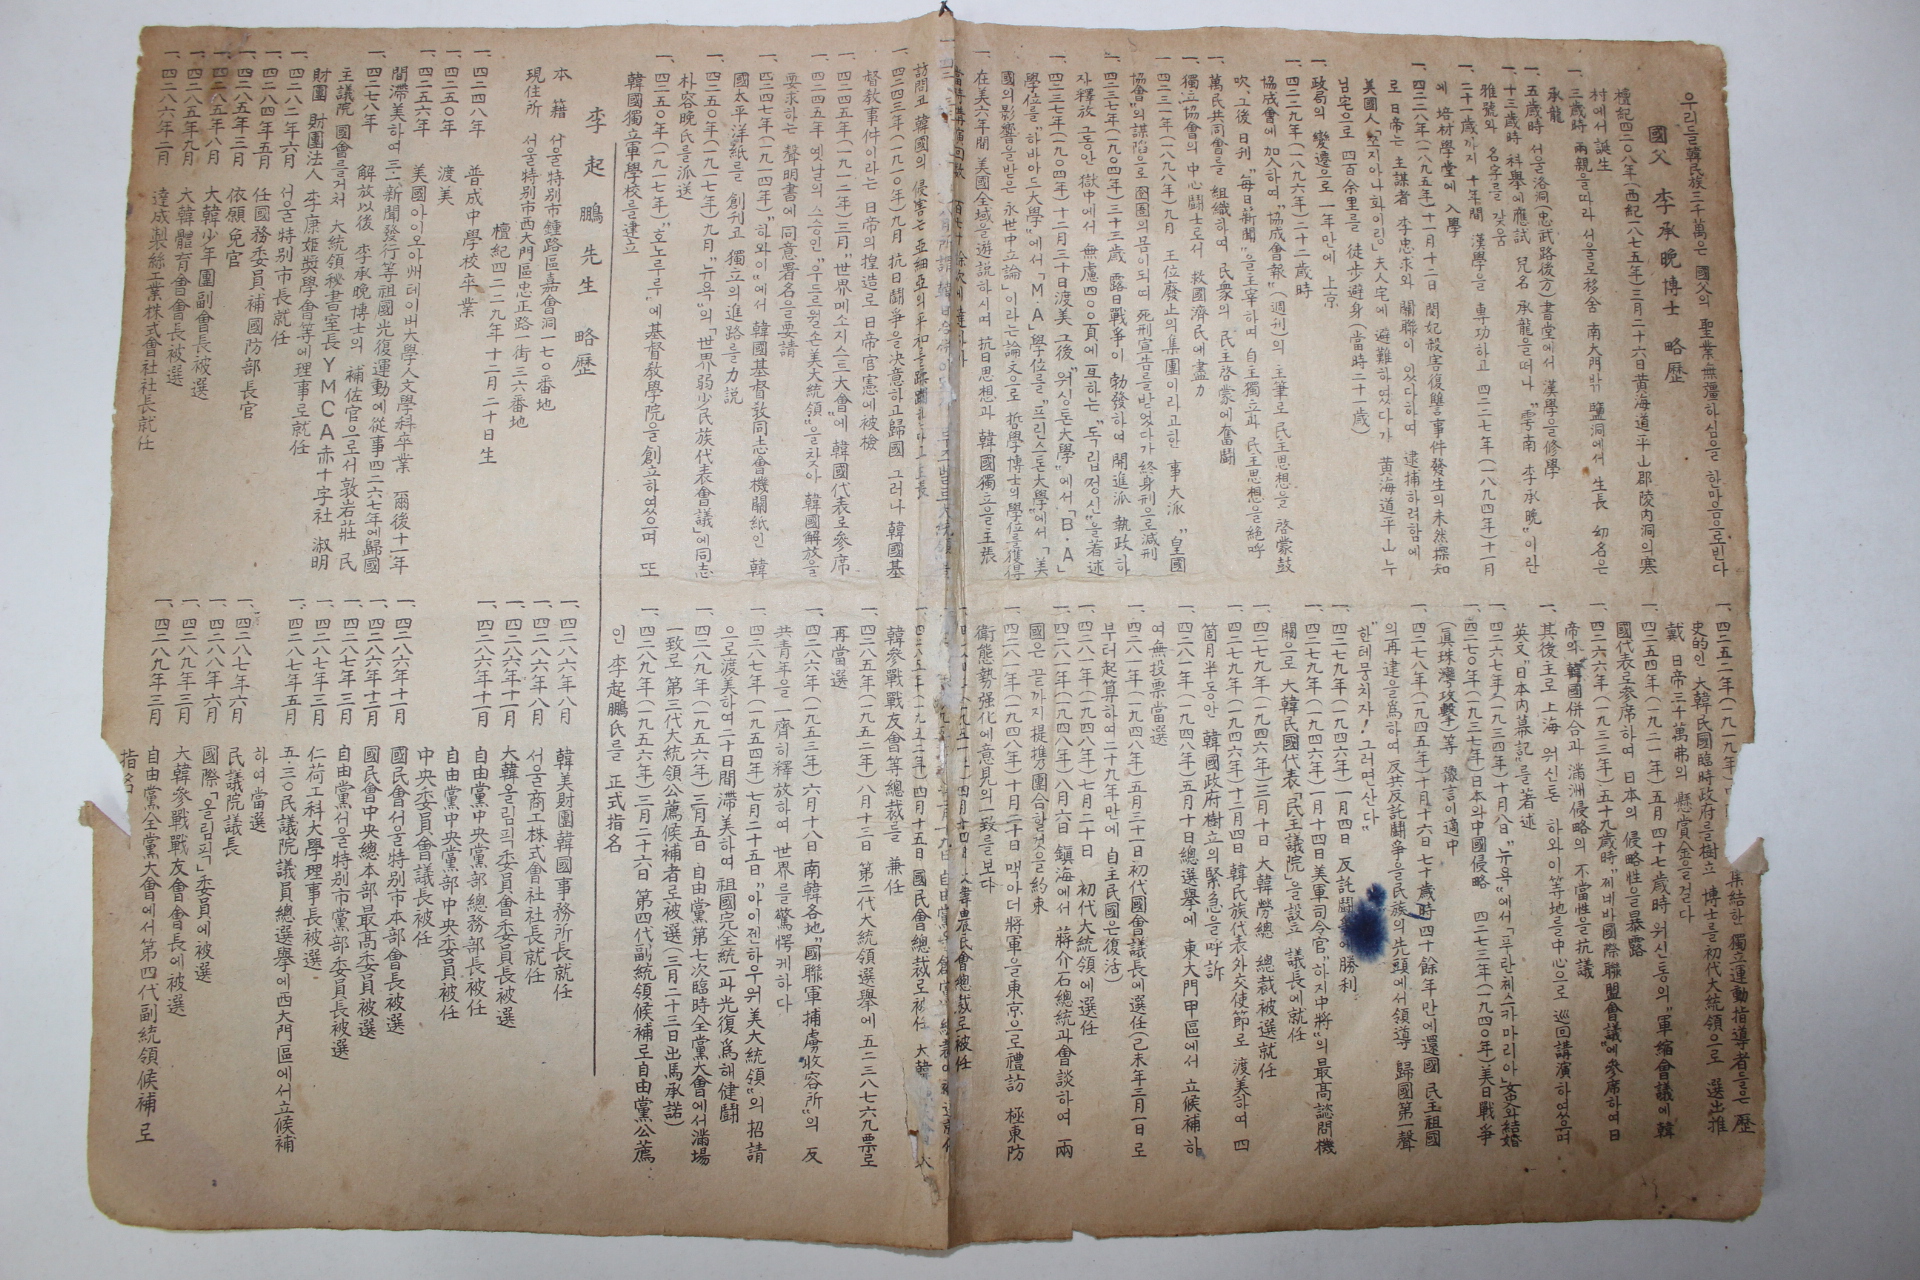 우리들 韓民族三千萬은 國父의 聖業無彊하심을 한마음으로빈다
國父 李承晩博士 略歷
檀紀四二〇八年(西紀一八七五年)三月二十六日黃海道平山郡陵內洞의寒
村에서誕生
一、三歲時 兩親을따라 서울로移舍 南大門밖 鹽洞에서 生長 幼名은
承龍
一、五歲時 서울洛洞(忠武路後方)書堂에서 漢學을修學
一、十三歲時 科擧에應試 兒名 承龍을떠나 "雩南 李承晩"이란
雅號와 名字를 갖음
一、二十一歲까지 十年間 漢學을 専功하고 四二二七年(一八九四年)十一月
에 培材學堂에 入學
一、四二二八年(一八九五年)十一月十二日 閔妃殺害復讐事件發生의未然探知
로 日帝는 主謀者 李忠求와 關聯이 있다하여 逮捕하려함에
美國人「쪼지아나화이링」夫人宅에 避難하였다가 黃海道平山 누
님宅으로 四百余里를 徒步避身(當時二十一歲)
一、政局의 變遷으로 一年만에 上京
一、四二二九年(一八九六年)二十二歲時
協成會에加入하여 "協成會報"(週刊)의 主筆로 民主思想을 啓蒙鼓
吹、그後 日刊 "每日新聞"을主宰하며 自主獨立과 民主思想을絶呼
一、萬民共同會를 組織하여 民衆의 民主啓蒙에奮鬪
一、獨立協會의 中心鬪士로서 救國濟民에盡力
一 四二三一年(一八九八年)九月 王位廢止의集團이라고한 事大派 "皇國
協會"의謀陷으로 囹圄의몸이되며 死刑宣告를받었다가終身刑으로減刑
一、四二三七年(一九〇四年)三十三歲 露日戰爭이 勃發하며 開進派 執政하
자釋放 그동안 獄中에서 無慮四〇〇頁에亘하는 "독립정신"을著述
一、四二三七年(一九〇四年)十二月三十日渡美 그後 "워싱톤大學"에서「B·A」
學位를 "하바아드大學"에서「M·A」學位를 "프린스톤大學"에서「美
國의影響을받은 永世中立論」이라는論文으로 哲學博士의學位를獲得
一、在美六年間 美國全域을遊說하시며 抗日思想과 韓國獨立을主張
一、四二四三年(一九一〇年)九月 抗日鬪爭을決意하고歸國 그러나 韓國基
督敎事件이라는 日帝의捏造로 日帝官憲에被檢
一、四二四五年(一九一二年)三月 "世界메소지스트大會"에 韓國代表로參席
一、四二四五年 옛날의 스승인 "우드로윌손美大統領"을차자 韓國解放을
要求하는 聲明書에 同意署名을要請
一、四二四七年(一九一四年) "하와이"에서 韓國基督敎同志會機關紙인 韓
國太平洋紙를 創刊고 獨立의進路를力說
一、四二五〇年(一九一七年)九月 "뉴욕"의「世界弱少民族代表會議」에同志
朴容晩氏를派送
一、四二五〇年(一九一七年) "호노루루"에基督敎學院을創立하였으며 또
韓國獨立軍學校를建立
一、四二五二年(一九一九年)
集結한獨立運動指導者들은 歷
史的인 大韓民國臨時政府를樹立 博士를初代大統領으로 選出推
戴 日帝三十萬弗의 懸賞金을걸다
一、四二五四年(一九二一年)五月四十七歲時워신통의 "軍縮會議"에韓
國代表로參席하여 日本의 侵略性을暴露
一、四二六六年(一九三三年)五十九歲時 "제네바國際聯盟會議"에參席하여日
帝의 韓國併合과 滿洲侵略의 不當性을抗議
一、其後主로 上海 워신톤 하와이等地를中心으로 巡回講演하였으며
英文 "日本內幕記"를著述
一、四二六七年(一九三四年)十月八日 "뉴욕"에서「푸란체스카마리아」女史와結婚
一、四二七〇年(一九三七年)日本와中國侵略 四二七三年(一九四〇年)美日戰爭
(眞珠灣攻擊)等 豫言이適中
一、四二七八年(一九四五年)十月十六日七十歲時四十餘年만에還國 民主祖國
의再建을爲하여 反共反託鬪爭을民族의先頭에서領導 歸國第一聲
"한테뭉치자! 그러면산다"
一、四二七九年(一九四六年)一月四日 反託鬪爭에勝利
一、四二七九年(一九四六年)一月十四日美軍司令官 "하지中將"의最高諮問機
關으로 大韓民國代表「民主議院」을設立 議長에就任
一、四二七九年(一九四六年)三月十日 大韓勞總 總裁被選就任
一、四二七九年(一九四六年)十二月四日 韓民族代表外交使節로 渡美하여 四
箇月半동안 韓國政府樹立의緊急을呼訴
一、四二八一年(一九四八年)五月十日總選擧에 東大門甲區에서 立候補하
여無投票當選
一、四二八一年(一九四八年)五月三十一日初代國會議長에選任(己未年三月一日로
부터起算하여二十九年만에 自主民國은復活)
一、四二八一年(一九四八年)七月二十日 初代大統領에選任
一、四二八一年(一九四八年)八月六日 鎭海에서 蔣介石總統과會談하여 兩
國은 끝까지提携團合할것을約束
一、四二八一年(一九四八年)十月二十日 맥아더將軍을東京으로禮訪 極東防
衛態勢强化에意見의一致를보다
大韓農民會總裁로被任
四月十五日國民會總裁로被任 大韓
韓參戰戰友會等總裁를 兼任
一、四二八五年(一九五二年)八月十三日 第二代大統領選擧에 五二三八七六九票로
再當選
一、四二八六年(一九五三年)六月十八日南韓各地 "國聯軍捕虜收容所"의 反
共靑年을一齊히釋放하여 世界를驚愕케하다
一、四二八七年(一九五四年)七月二十五日 "아이젠하우워美大統領"의招請
으로渡美하여二十日間滯美하여祖國完全統一과光復爲해健鬪
一、四二八九年(一九五六年)三月五日 自由黨第七次臨時全黨大會에서滿場
一致로 第三代大統領公薦候補者로被選(三月二十三日出馬承諾)
一、四二八九年(一九五六年)三月二十六日 第四代副統領候補로自由黨公薦
인 李起鵬氏를 正式指名
李起鵬先生 略歷
檀紀四二二九年十二月二十日生
本籍 서울特別市鍾路區嘉會洞一七〇番地
現住所 서울特別市西大門區忠正路一街三六番地
一、四二四八年 普成中學校卒業
一、四二五〇年 渡美
一、四二五六年 美國아이오아州데이버大學人文學科卒業 爾後十一年
間滯美하여 三一新聞發行等祖國光復運動에從事四二六七年에歸國
一、四二七八年 解放以後 李承晩博士의 補佐官으로서敦岩莊 民
主議院 國會를거처 大統領秘書室長 YMCA 赤十字社 淑明
財團 財團法人 李康姬奬學會等에理事로就任
一、四二八二年六月 서울特別市長就任
一、四二八四年五月 任國務委員補國防部長官
一、四二八五年三月 依願免官
一、四二八五年八月 大韓少年團副會長被選
一、四二八五年九月 大韓體育會會長被選
一、四二八六年二月 達成製絲工業株式會社社長就任
一、四二八六年八月 韓美財團韓國事務所長就任
一、四二八六年八月 서울商工株式會社社長就任
一、四二八六年十一月 大韓올림픽委員會委員長被選
一、四二八六年十一月 自由黨中央黨部總務部長被任
自由黨中央黨部中央委員被任
中央委員會議長被任
一、四二八六年十一月 國民會서울特別市本部會長被選
一、四二八六年十二月 國民會中央總本部最高委員被選
一、四二八七年三月 自由黨서울特別市黨部委員長被選
一、四二八七年三月 仁荷工科大學理事長被選
一、四二八七年五月 五·三〇民議院議員總選擧에西大門區에서立候補
하여當選
一、四二八七年六月 民議院議長
一、四二八八年六月 國際「올림픽」委員에被選
一、四二八九年三月 大韓參戰戰友會會長에被選
一、四二八九年三月 自由黨全黨大會에서第四代副統領候補로
指名